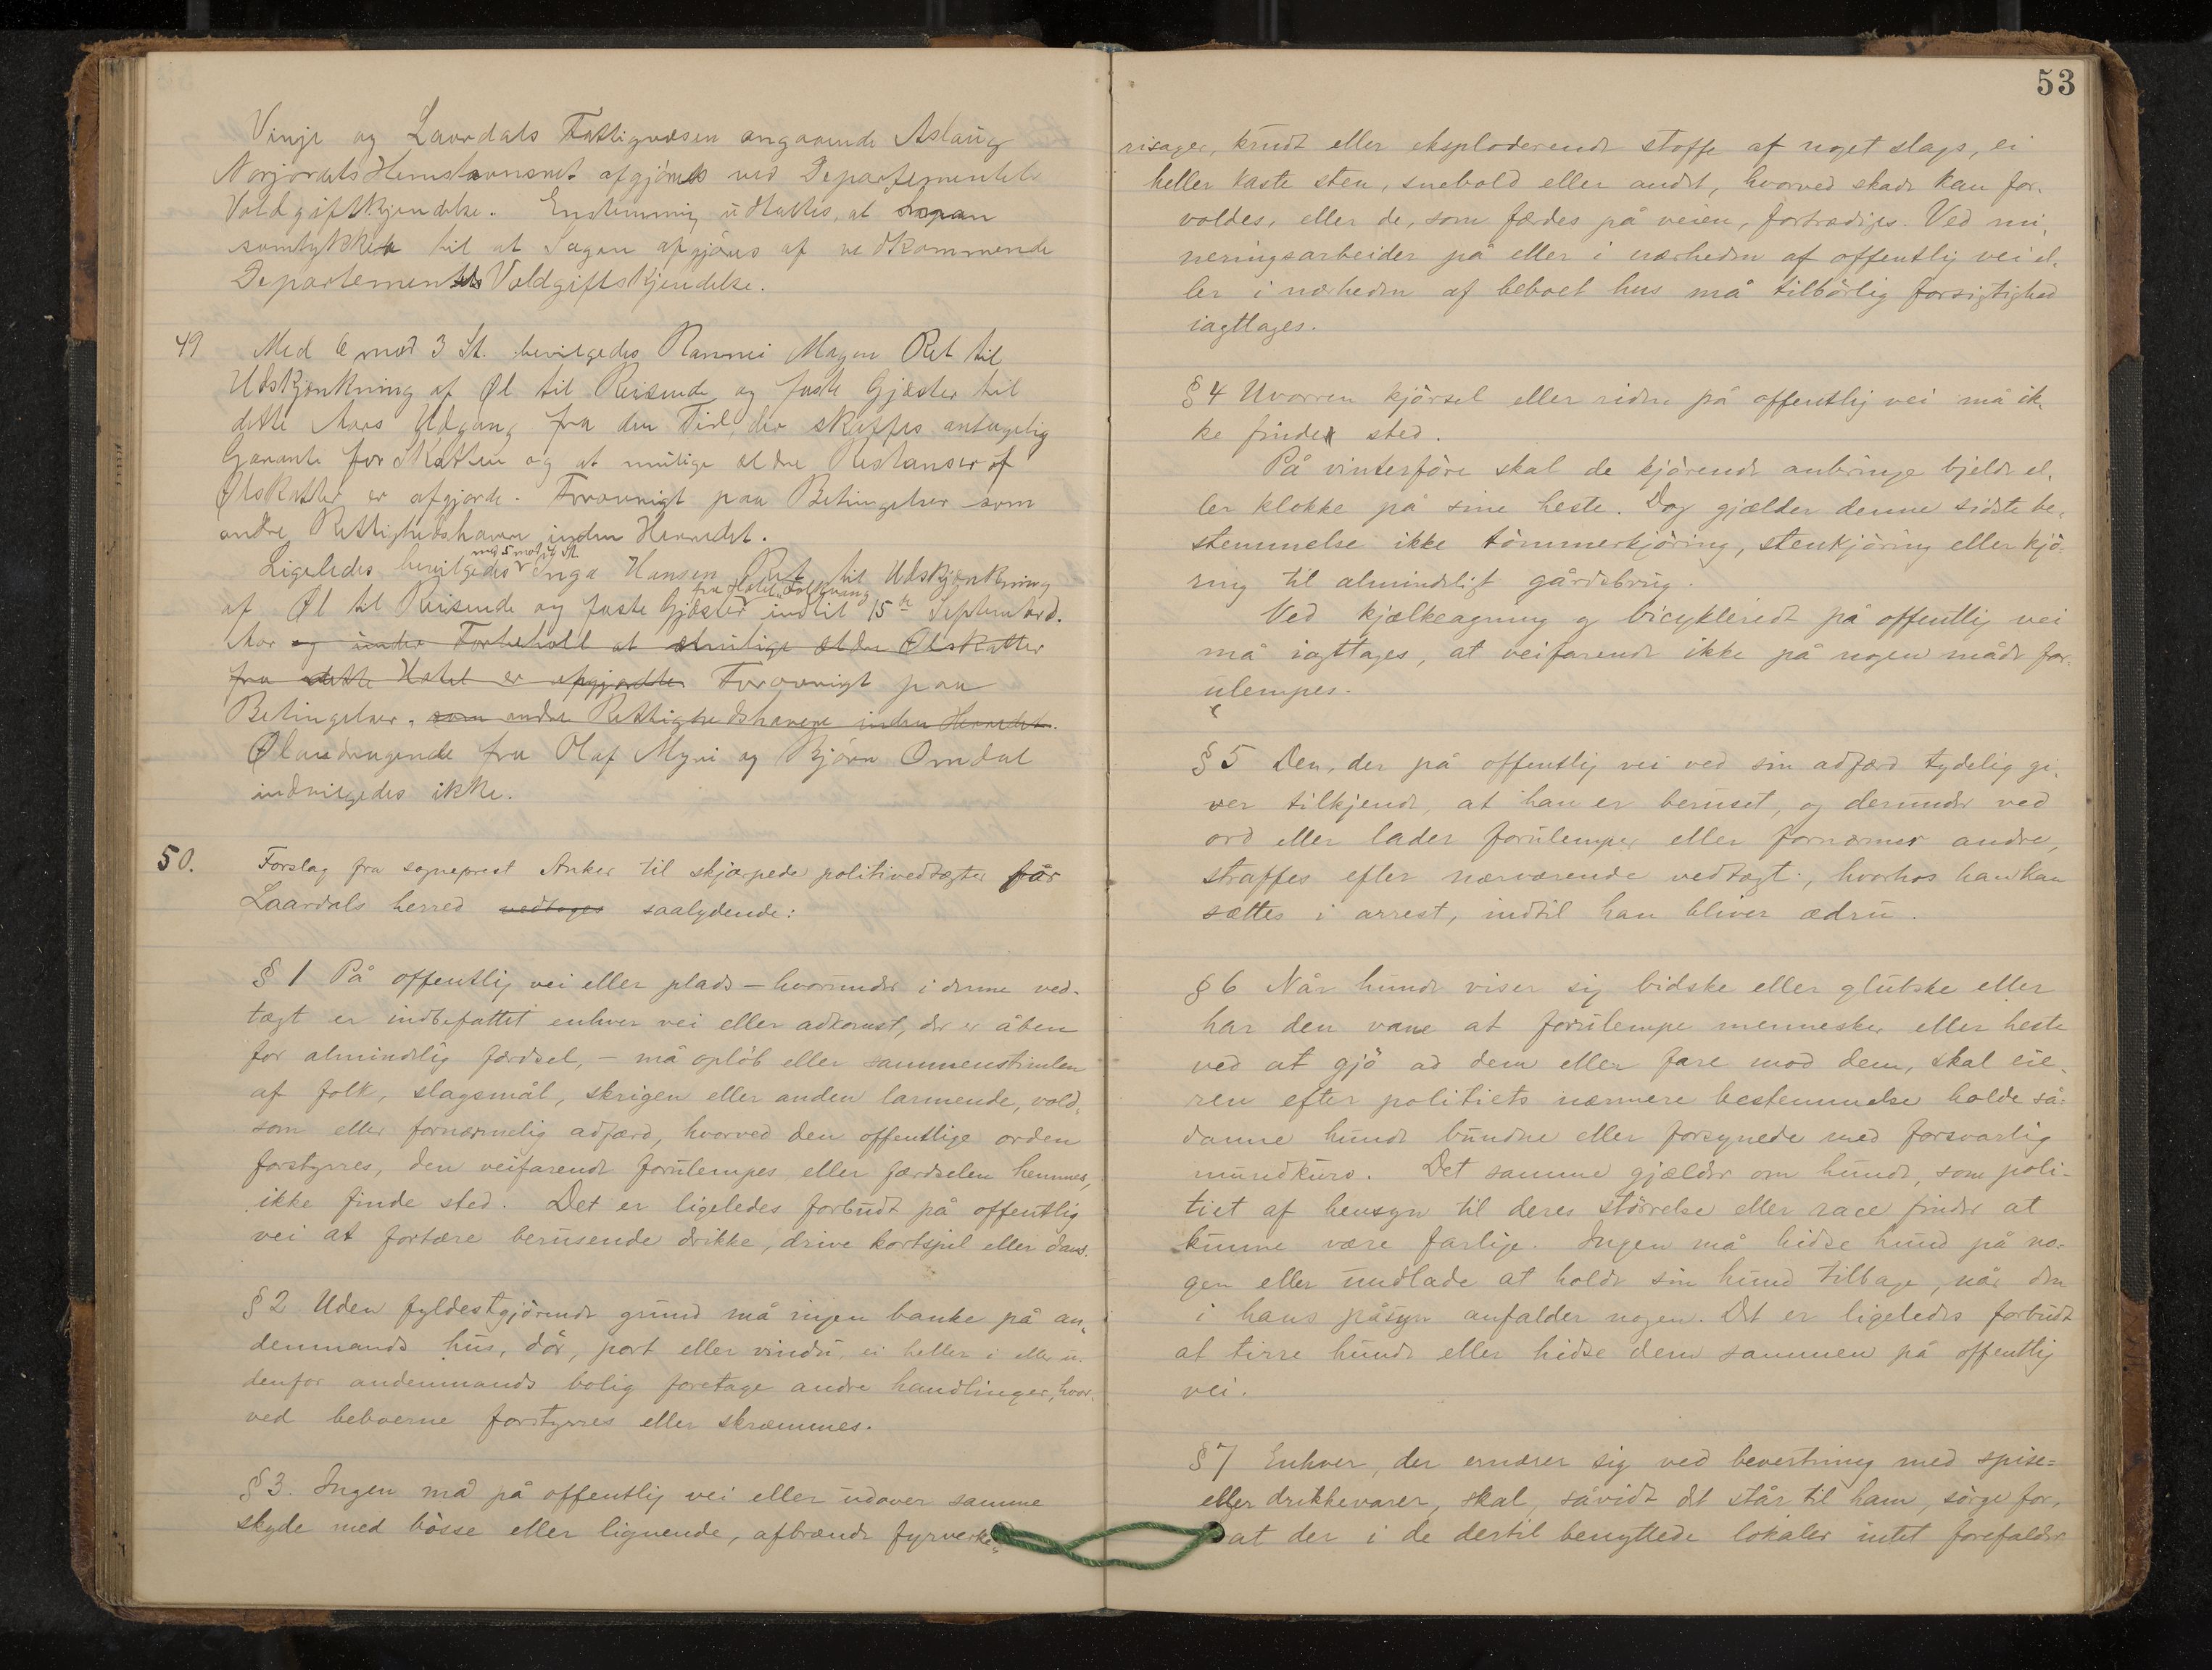 Vinje og Laurdals Fattigvæsen angaaende Aslaug
Norjordets Hemstavnsret afgjöres ved Departementets
Voldgiftskjendelse. Enstemmig udtaltes, at
samtykker til at Sagen afgjöres af vedkommende
Departements Voldgiftskjendelse.
49 Med 6 mod 3 St. bevilgedes Rannei Mogen Ret til
Udskjænkning af Øl til Reisende og faste Gjæster til
dette Aars Udgang fra den Tid, der skaffes antagelig
Garanti for Skatten og at mulige ældre Restanser af
Ølskatter er afgjorde. Forövrigt paa Betingelser som
andre Rettighedshavere inden Herredet.
med 5 mod 4 St
Ligeledes bevilgedes Inga Hansen Ret til Udskjænkning
fra Hotel
af Øl til Reisende og faste Gjæster indtil 15de September d.
Aar og under Forbehold at mulige ældre Ølskatter
fra dette Hotel er afgjordte. Forövrigt paa
Betingelser, som andre Rettighedshavere inden Herredet.
Ølandragende fra Olaf Myri og Björn Omdal
indvilgedes ikke.
50. Forslag fra sogneprest Anker til skjærpede politivedtægter för
Laardals herred vedtages saalydende:
§ 1 På offentlig vei eller plads – hvorunder i denne ved-
tægt er indbefattet enhver vei eller adkomst, der er åben
for almindelig færdsel, – må opløb eller sammenstimlen
af folk, slagsmål, skrigen eller anden larmende, vold,
som eller fornærmelig adfærd, hvorved den offentlige orden
forstyrres, den veifarende forulempes eller færdselen hemmes,
ikke finde sted. Det er ligeledes forbudt på offentlig
vei at fortære berusende drikke, drive kortspil eller dans.
§ 2 Uden fyldestgjörende grund må ingen banke på an-
denmands hus, dör, port eller vindu, ei heller i eller u-
denfor andenmands bolig foretage andre handlinger, hvor-
ved beboerne forstyrres eller skræmmes.
§ 3. Ingen må på offentlig vei eller udover samme
skyde med bösse eller lignende, afbrænde fyrverke-
53
risager, krudt eller eksploderende stoffe af noget slags, ei
heller kaste sten, snebold eller andet, hvorved skade kan for-
voldes, eller de, som færdes på veien, fortrædiges. Ved mi-
neringsarbeider på eller i nærheden af offentlig vei el-
ler i nærheden af beboet hus må tilbörlig forsigtighed
iagttages.
§ 4 Uvorren kjörsel eller riden på offentlig vei må ik-
ke finde sted.
På vinterföre skal de kjörende anbringe bjelde el-
ler klokke på sine heste. Dog gjælder denne sidste be-
stemmelse ikke tömmerkjöring, stenkjöring eller kjö-
ring til almindeligt gårdsbrug.
Ved kjælkeagning og bicykleridt på offentlig vei
må iagttages, at veifarende ikke på nogen måde for-
ulempes.
§ 5 Den, der på offentlig vei ved sin adfærd tydelig gi-
ver tilkjende, at han er beruset, og derunder ved
ord eller lader forulemper eller fornærmer andre,
straffes efter nærværende vedtægt, hvorhos han kan
sættes i arrest, indtil han bliver ædru.
§ 6 Når hunde viser sig bidske eller glubske eller
har den vane at forulempe mennesker eller heste
ved at gjö ad dem eller fare mod dem, skal eie-
ren efter politiets nærmere bestemmelse holde så-
danne hunde bundne eller forsynede med forsvarlig
mundkurv. Det samme gjælder om hunde, som poli-
tiet af hensyn til deres störrelse eller race finder at
kunne være farlige. Ingen må hidse hund på no-
gen eller undlade at holde sin hund tilbage, når den
i hans påsyn anfalder nogen. Det er ligeledes forbudt
at tirre hunde eller hidse dem sammen på offentlig
vei.
§ 7 Enhver, der ernærer sig ved bevertning med spise-
eller drikkevarer, skal, såvidt det står til ham, sörge for,
at der i de dertil benyttede lokaler intet forefalder